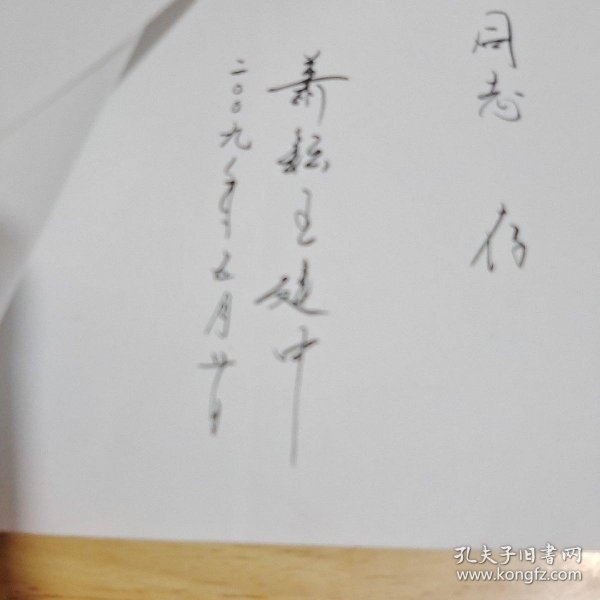 同志 存
萧耘王建中
二〇〇九年五月廿日
孔夫子旧书网
www.kongfz.com